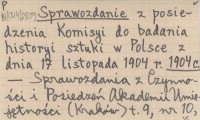 Sprawozdanie z posie-
dzenia Komisyi do badania
historyi sztuki w Polsce z
dnia 17 listopada 1904 r. 1904 r.
— Sprawozdania z Czynno-
ści i Posiedzeń Akademii Umie-
jętności (Kraków) t. 9, nr 10,